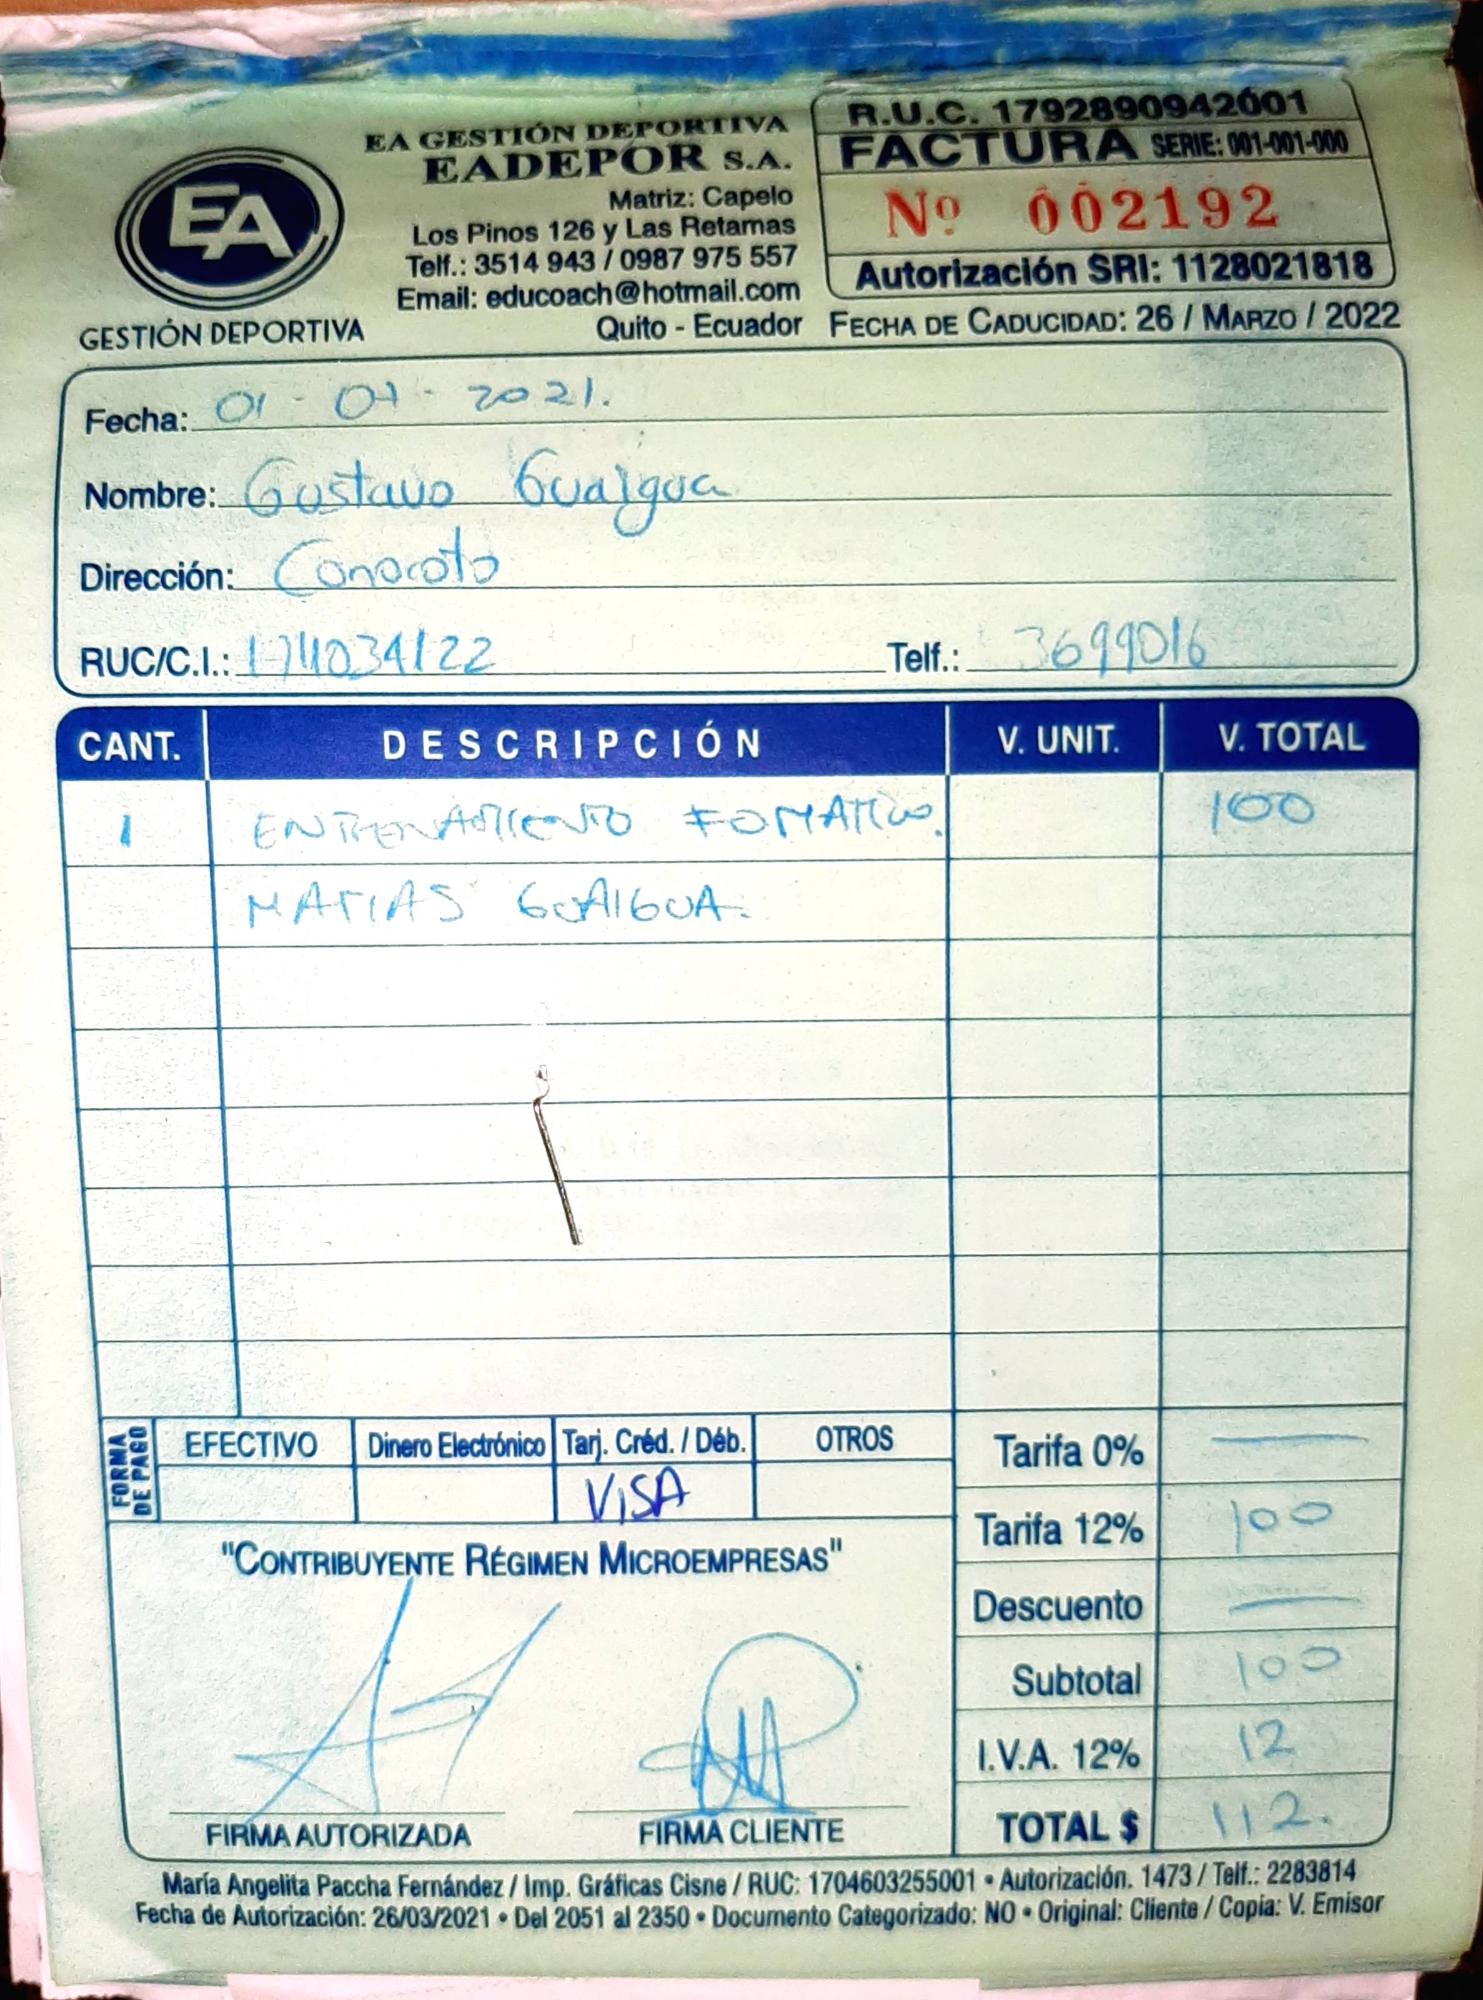 EA GESTIÓN DEPORTIVA
EADEPOR S.A.
Matriz: Capelo
Los Pinos 126 y Las Retamas
Telf.: 3514 943 / 0987 975 557
Email: educoach@hotmail.com
Quito - Ecuador
EA
GESTIÓN DEPORTIVA
R.U.C. 1792890942001
FACTURA SERIE: 001-001-000
Nº 002192
Autorización SRI: 1128021818
FECHA DE CADUCIDAD: 26 / MARZO / 2022
Fecha: 01 - 07 - 2021.
Nombre: Gustavo Guaigua
Dirección: Conocoto
RUC/C.I.: Telf.: 3699016
CANT. DESCRIPCIÓN V. UNIT. V. TOTAL
1 ENTRENAMIENTO FOMATIVO. 100
MATIAS GUAIGUA.
FORMA DE PAGO
EFECTIVO Dinero Electrónico Tarj. Créd. / Déb. OTROS
VISA
Tarifa 0% —
Tarifa 12% 100
Descuento —
Subtotal 100
I.V.A. 12% 12
TOTAL $ 112.
"CONTRIBUYENTE RÉGIMEN MICROEMPRESAS"
FIRMA AUTORIZADA FIRMA CLIENTE
María Angelita Paccha Fernández / Imp. Gráficas Cisne / RUC: 1704603255001 • Autorización. 1473 / Telf.: 2283814
Fecha de Autorización: 26/03/2021 • Del 2051 al 2350 • Documento Categorizado: NO • Original: Cliente / Copia: V. Emisor